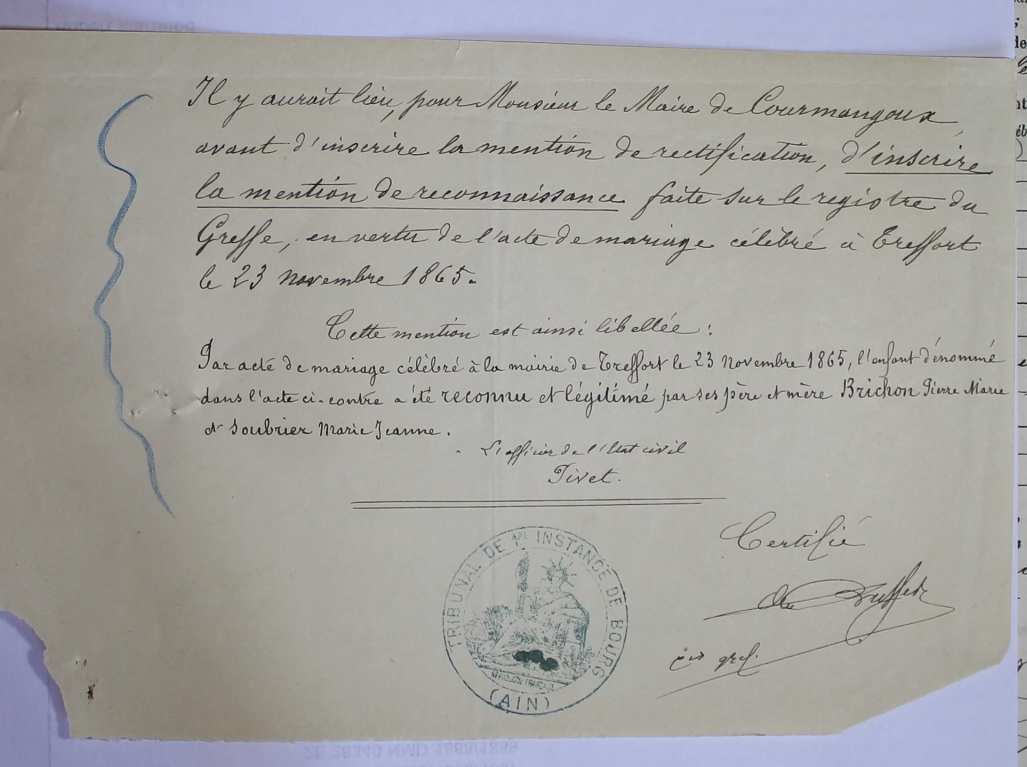 Il y aurait lieu, pour Monsieur le Maire de Courmangoux,
avant d'inscrire la mention de rectification, d'inscrire
la mention de reconnaissance faite sur le registre du
Greffe, en vertu de l'acte de mariage célébré à Treffort
le 23 novembre 1865.
Cette mention est ainsi libellée :
Par acte de mariage célébré à la mairie de Treffort le 23 novembre 1865, l'enfant dénommé
dans l'acte ci-contre a été reconnu et légitimé par ses père et mère Brichon Pierre Marie
et Soubrier Marie Jeanne.
L'officier de l'état civil
Tivet.
Certifié
TRIBUNAL DE 1re INSTANCE DE BOURG
(AIN)